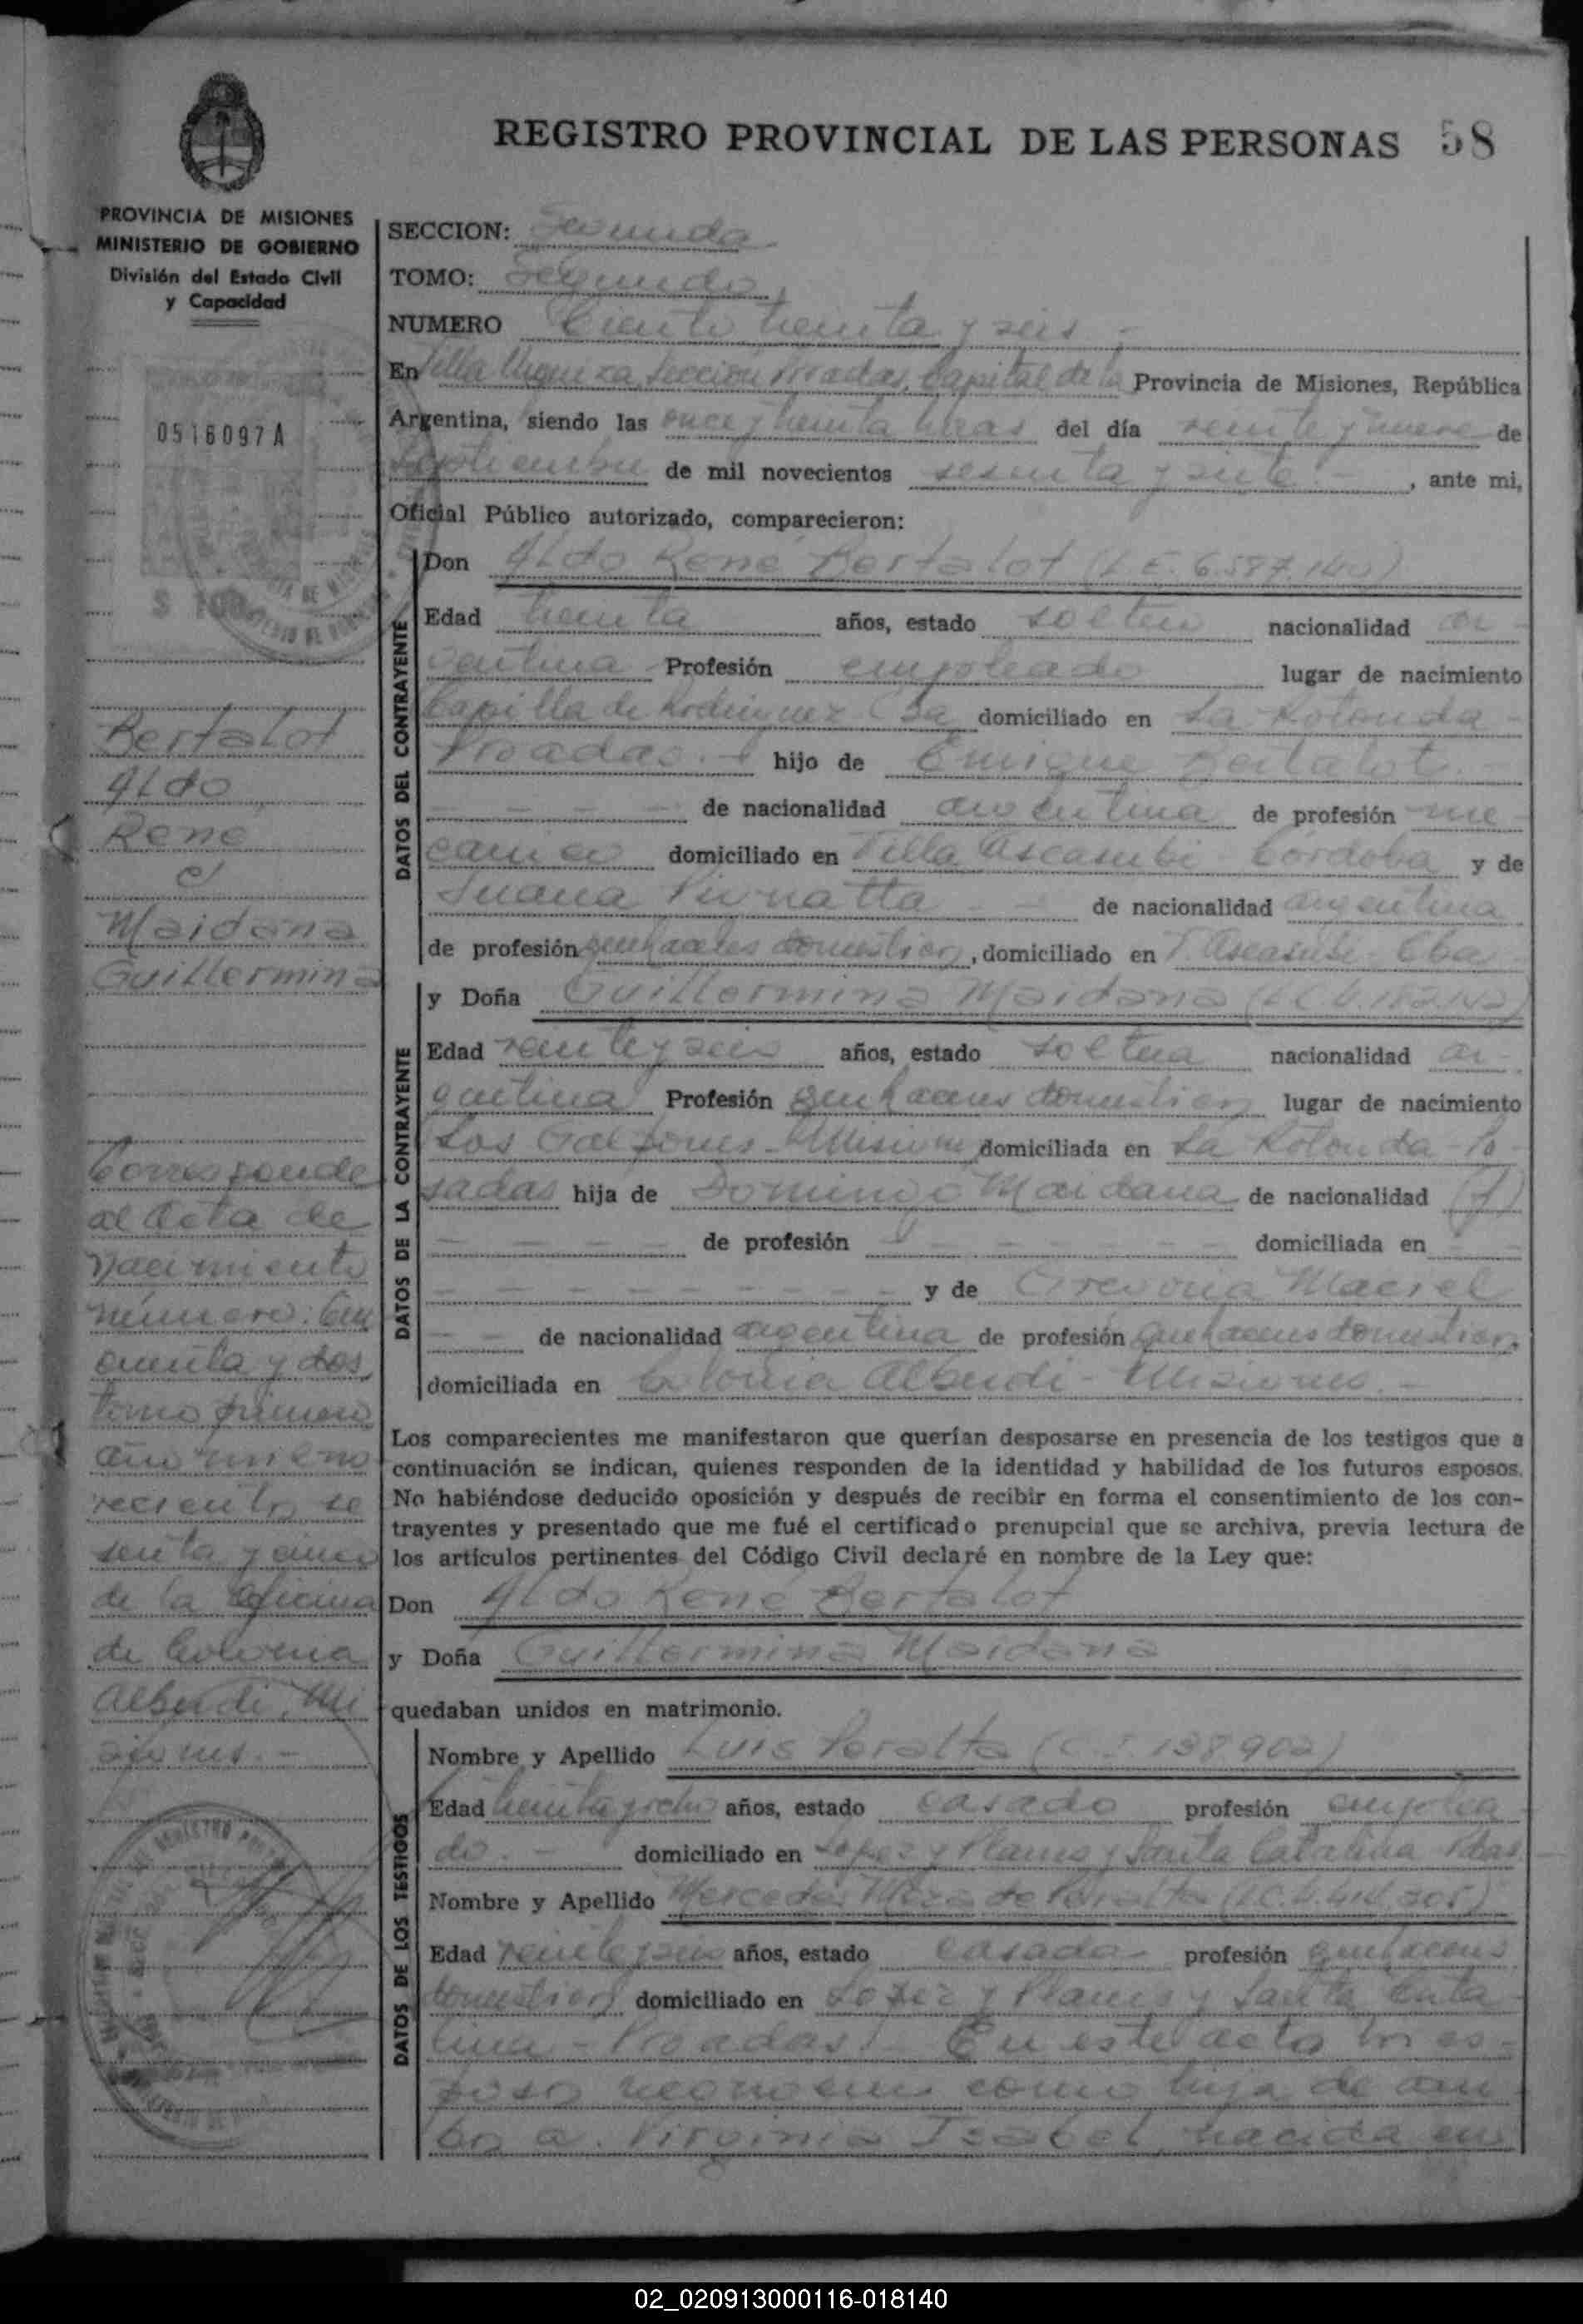 REGISTRO PROVINCIAL DE LAS PERSONAS 58
PROVINCIA DE MISIONES
MINISTERIO DE GOBIERNO
División del Estado Civil
y Capacidad
0516097 A
Bertalot
Aldo
René
c/
Maidana
Guillermina
Corresponde
al Acta de
nacimiento
número: Cin
cuenta y dos
tomo primero
año mil no
vecientos se
senta y cinco
de la Oficina
de Colonia
Alberdi, Mi
siones.-
SECCION: Segunda
TOMO: Segundo
NUMERO Ciento treinta y seis
En Villa Urquiza Sección Posadas, Capital de la Provincia de Misiones, República
Argentina, siendo las once y treinta horas del día veinte y nueve de
septiembre de mil novecientos sesenta y siete.-, ante mi,
Oficial Público autorizado, comparecieron:
DATOS DEL CONTRAYENTE
Don Aldo René Bertalot (L.E. 6.587.140)
Edad treinta años, estado soltero nacionalidad ar-
gentina Profesión empleado lugar de nacimiento
Capilla de Rodriguez Cba domiciliado en La Rotonda-
Posadas.- hijo de Enrique Bertalot.
de nacionalidad argentina de profesión me-
canico domiciliado en Villa Ascasubi Córdoba y de
Juana de nacionalidad argentina
de profesión quehaceres domésticos, domiciliado en V. Ascasubi-Cba
DATOS DE LA CONTRAYENTE
y Doña Guillermina Maidana (L.C. 6.182.142)
Edad veinte y seis años, estado soltera nacionalidad ar-
gentina Profesión quehaceres domésticos lugar de nacimiento
Los Galpones-Misiones domiciliada en La Rotonda-Po-
sadas hija de Domingo Maidana de nacionalidad (f)
de profesión domiciliada en
y de Gregoria Maciel
de nacionalidad argentina de profesión quehaceres domésticos,
domiciliada en Colonia Alberdi-Misiones.-
Los comparecientes me manifestaron que querían desposarse en presencia de los testigos que a
continuación se indican, quienes responden de la identidad y habilidad de los futuros esposos.
No habiéndose deducido oposición y después de recibir en forma el consentimiento de los con-
trayentes y presentado que me fué el certificado prenupcial que se archiva, previa lectura de
los artículos pertinentes del Código Civil declaré en nombre de la Ley que:
Don Aldo René Bertalot
y Doña Guillermina Maidana
quedaban unidos en matrimonio.
DATOS DE LOS TESTIGOS
Nombre y Apellido Luis Peralta (C.I. 138.902)
Edad treinta y ocho años, estado casado profesión emplea-
do.- domiciliado en Lopez y Planes y Santa Catalina Pdas
Nombre y Apellido Mercedes de Peralta
Edad veinte y seis años, estado casada profesión quehaceres
domésticos domiciliado en Lopez y Planes y Santa Cata-
lina-Posadas.- En este acto los es-
posos reconocen como hija de am-
bos a Virginia Isabel, nacida en
02_020913000116-018140